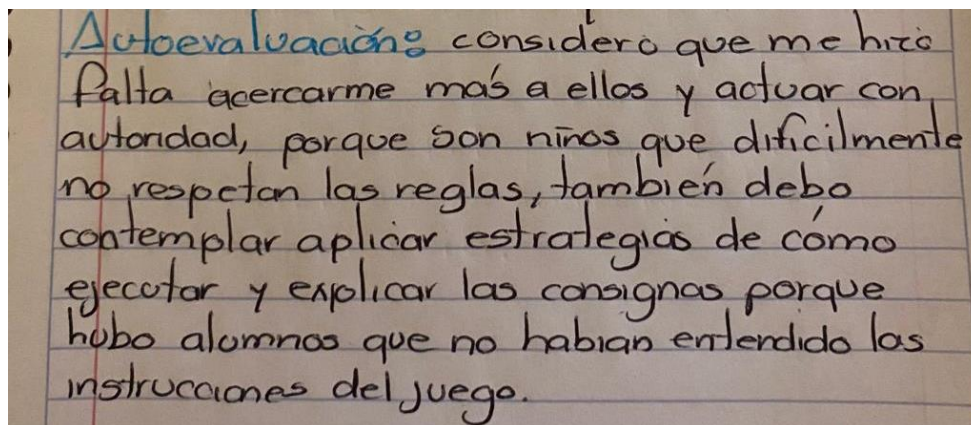 Autoevaluación: considero que me hizo
falta acercarme más a ellos y actuar con
autoridad, porque son niños que dificilmente
no respetan las reglas, también debo
contemplar aplicar estrategias de cómo
ejecutar y explicar las consignas porque
hubo alumnos que no habian entendido las
instrucciones del juego.